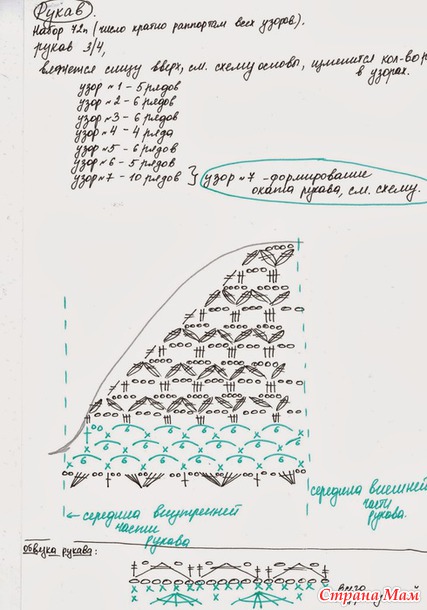 Рукав.
Набор 72п (число кратно раппортам всех узоров).
рукав 3/4,
вяжется снизу вверх, см. схему основы, изменится кол-во р
в узорах.
узор №1 - 5 рядов
узор №2 - 6 рядов
узор №3 - 6 рядов
узор №4 - 4 ряда
узор №5 - 6 рядов
узор №6 - 5 рядов
узор №7 - 10 рядов } узор №7 - формирование
оката рукава, см. схему.
6 6 6 6
6 6 6 6
6 6 6 6
середина внешней
части
рукава.
← середина внутренней
части
рукава
Обвязка рукава:
Страна Мам